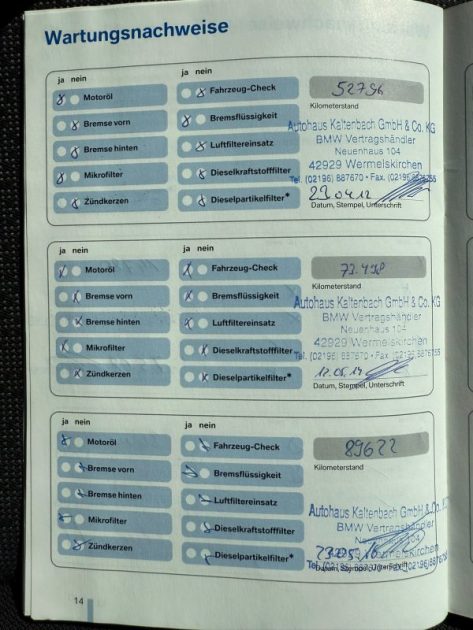 Wartungsnachweise
ja nein
ja nein
Motoröl
Fahrzeug-Check
52796
Bremse vorn
Bremsflüssigkeit
Kilometerstand
Bremse hinten
Luftfiltereinsatz
Autohaus Kaltenbach GmbH & Co. KG
BMW Vertragshändler
Neuenhaus 104
42929 Wermelskirchen
Tel. (02196) 887670 • Fax. (02196) 8876755
Mikrofilter
Dieselkraftstofffilter
Zündkerzen
Dieselpartikelfilter*
23.04.12
Datum, Stempel, Unterschrift
ja nein
ja nein
Motoröl
Fahrzeug-Check
73.498
Bremse vorn
Bremsflüssigkeit
Kilometerstand
Bremse hinten
Luftfiltereinsatz
Autohaus Kaltenbach GmbH & Co. KG
BMW Vertragshändler
Neuenhaus 104
42929 Wermelskirchen
Tel. (02196) 887670 • Fax. (02196) 8876755
Mikrofilter
Dieselkraftstofffilter
Zündkerzen
Dieselpartikelfilter*
12.05.14
Datum, Stempel, Unterschrift
ja nein
ja nein
Motoröl
Fahrzeug-Check
89622
Bremse vorn
Bremsflüssigkeit
Kilometerstand
Bremse hinten
Luftfiltereinsatz
Autohaus Kaltenbach GmbH & Co. KG
BMW Vertragshändler
104
Mikrofilter
Dieselkraftstofffilter
Zündkerzen
Dieselpartikelfilter*
Datum, Stempel, Unterschrift
14